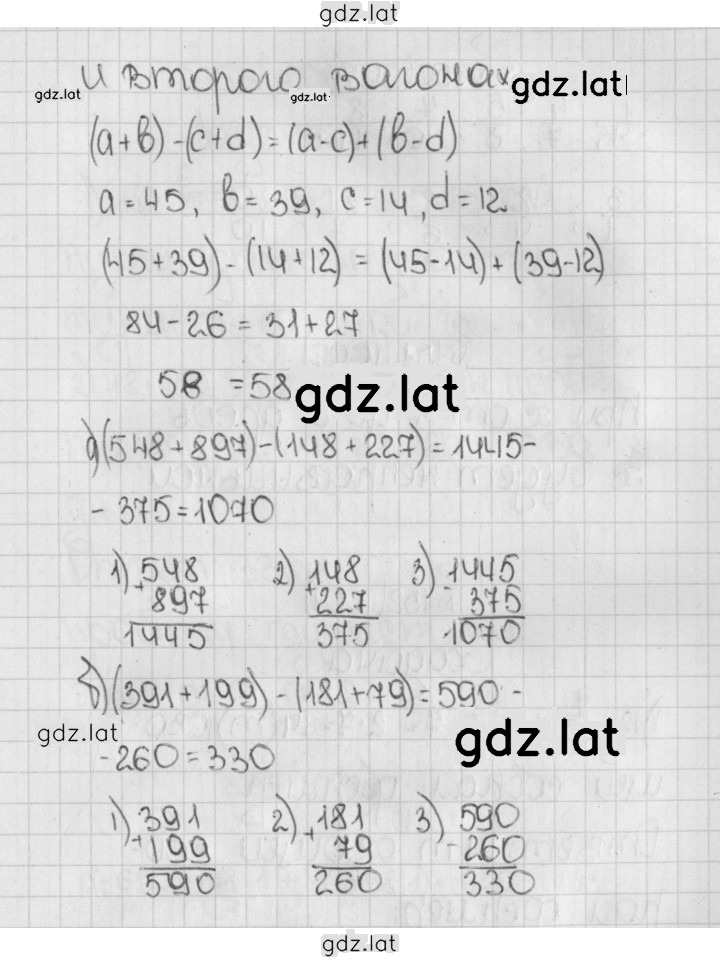 gdz.lat
и второго вагонах gdz.lat
gdz.lat gdz.lat
(a+b)-(c+d)=(a-c)+(b-d)
a=45, b=39, c=14, d=12
(45+39)-(14+12)=(45-14)+(39-12)
84-26=31+27
58=58 gdz.lat
а)(548+897)-(148+227)=1445-
-375=1070
1) 548 2) 148 3) 1445
+ 897 + 227 - 375
1445 375 1070
б)(391+199)-(181+79)=590-
gdz.lat gdz.lat
-260=330
1) 391 2) 181 3) 590
+ 199 + 79 - 260
590 260 330
gdz.lat